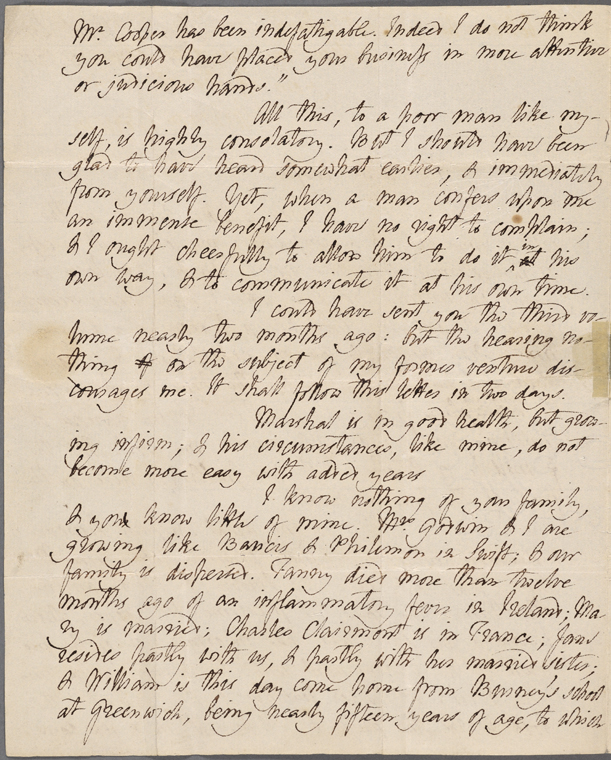 Mr. Cooper has been indefatigable. Indeed I do not think
you could have placed your business in more attentive
or judicious hands."
All this, to a poor man like my-
self, is highly consolatory. But I should have been
glad to have heard somewhat earlier, & immediately
from yourself. Yet, when a man confers upon me
an immense benefit, I have no right to complain;
& I ought cheerfully to allow him to do it in his
own way, & to communicate it at his own time.
I could have sent you the third vo-
lume nearly two months ago: but the hearing no-
thing on the subject of my former venture dis-
courages me. It shall follow this letter in two days.
Marshal is in good health, but grow-
ing infirm; & his circumstances, like mine, do not
become more easy with added years
I know nothing of your family,
& you know little of mine. Mrs Godwin & I are
growing like Baucis & Philemon in Swift; & our
family is dispersed. Fanny died more than twelve
months ago of an inflammatory fever in Ireland; Ma-
ry is married; Charles Clairmont is in France; Jane
resides partly with us, & partly with her married sister;
& William is this day come home from Burney's school
at Greenwich, being nearly fifteen years of age, to which